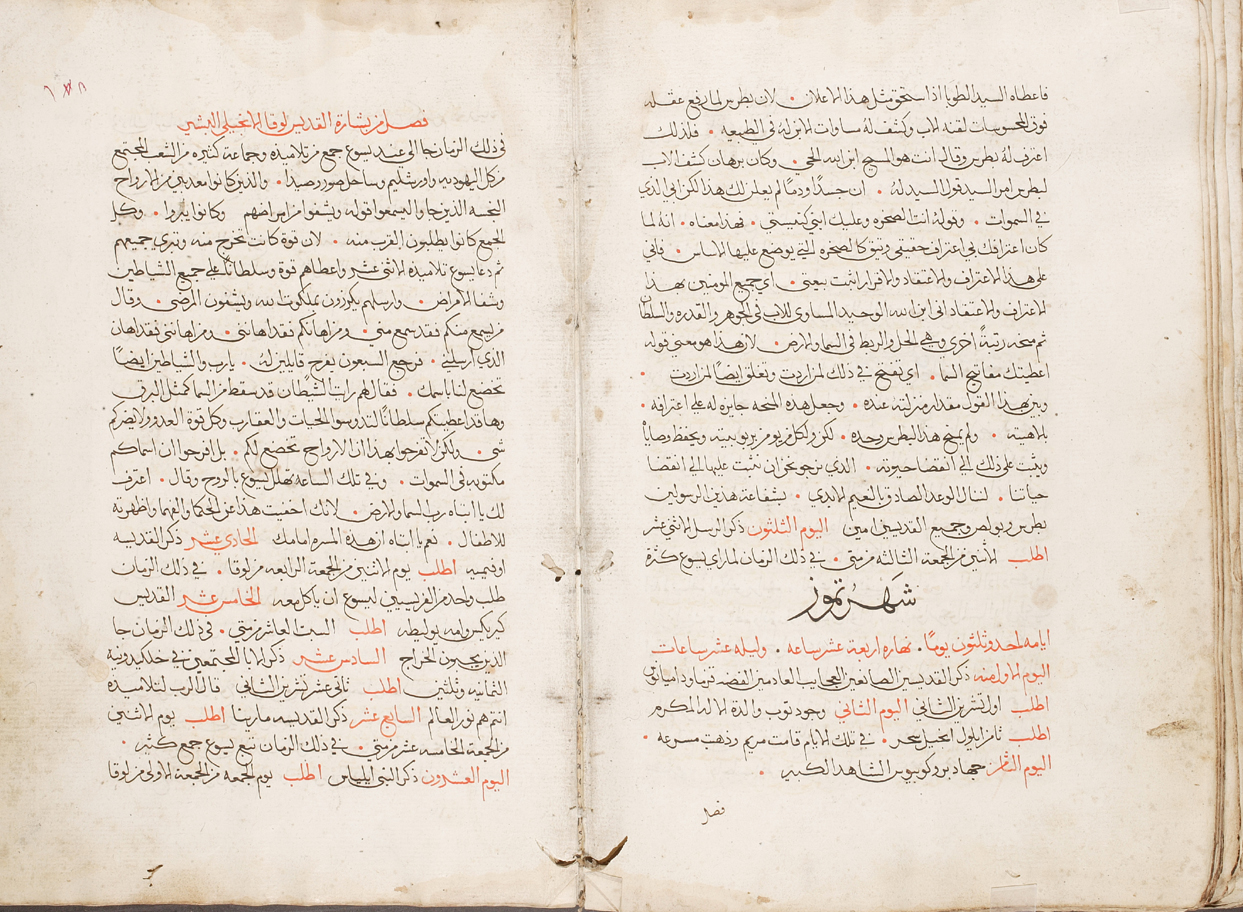 فاعطاه السيد الطوبا اذ استحق مثل هذا الاعلان • لان بطرس لما رفع عقله
فوق المحسوسات لقنه الاب وكشف له مساوات الابن له في الطبيعه • فلذلك
اعترف له بطرس وقال انت هو المسيح ابن الله الحي • وكان برهان كشف الاب
لبطرس امر السيد قول السيد له • ان جسدًا ودمًا لم يعلن لك هذا لكن ابي الذي
في السموات • وقوله انت الصخره وعليك ابني كنيستي • فهذا معناه • انه لما
كان اعترافك بي اعتراف حقيقي وثيق كالصخره التي يوضع عليها الاساس • فاني
على هذا الاعتراف والاعتقاد والاقرار اثبت بيعتي • اي جميع المومنين بهذا
الاعتراف والاعتقاد اني ابن الله الوحيد المساوي للاب في الجوهر والقدره والسلطان
ثم منحه رتبةً اخري وهي الحل والربط في السما والارض • لان هذا هو معني قوله
اعطيتك مفاتيح السما • اي تفتح في ذلك لمن اردت وتغلق ايضًا لمن اردت •
وبين بهذا القول مقدار منزلته عنده • وجعل هذه المنحه جايزه له على اعترافه •
بالاهيته • ولم يمنح هذا البطرس وحده • لكن ولكل من يومن بربوبيته ويحفظ وصاياه
ويثبت على ذلك الي انقضا حيوته • الذي نرجو نحن ان نثبت عليها الي انقضا
حياتنا • لننال الوعد الصادق بالنعيم الابدي • بشفاعة هذين الرسولين
بطرس وبولص وجميع القديسين امين اليوم الثلثون ذكر الرسل الاثني عشر
اطلب الاثنين من الجمعة الثالثه من متي • في ذلك الزمان لما راي يسوع كثرة
شهر تموز
ايامه احد وثلثون يومًا • نهاره اربعة عشر ساعه • وليله عشر ساعات
اليوم الاول منه ذكر القديسين الصانعين العجايب العادمين الفضه قزما ودميانوس
اطلب اول تشرين الثاني اليوم الثاني وجود ثوب والدة الاله المكرم
اطلب ثامن ايلول انجيل سحر • في تلك الايام قامت مريم وذهبت مسرعه •
اليوم الثامن جهاد بروكوبيوس الشاهد الكبير •
فصل
فصل من بشارة القديس لوقا الانجيلي البشير
في ذلك الزمان جا الي عند يسوع جمع من تلاميذه وجماعة كثيره من الشعب المجتمع
من كل اليهوديه واورشليم وساحل صور وصيدا • والذين كانوا معذبين من الارواح
النجسه الذين جاوا ليسمعوا قوله ويشفوا من امراضهم وكانوا يبروا • وكل
الجمع كانوا يطلبون القرب منه • لان قوة كانت تخرج منه وتبري جميعهم
ثم دعا يسوع تلاميذه الاثني عشر واعطاهم قوة وسلطانًا على جميع الشياطين
وشفا الامراض • وارسلهم يكرزون بملكوت الله ويشفون المرضي • وقال
من يسمع منكم فقد سمع مني • ومن اهانكم فقد اهانني • ومن اهانني فقد اهان
الذي ارسلني • فرجع السبعون بفرح قايلين له • يارب والشياطين ايضًا
تخضع لنا باسمك • فقال لهم رايت الشيطان قد سقط من السما كمثل البرق
وها قد اعطيتكم سلطانًا لتدوسوا الحيات والعقارب وكل قوة العدو ولا يضركم
شي • ولكن لا تفرحوا بهذا ان الارواح تخضع لكم • بل افرحوا ان اسماكم
مكتوبه في السموات • وفي تلك الساعه تهلل يسوع بالروح وقال • اعترف
لك يا ابتاه رب السما والارض • لانك اخفيت هذا عن الحكما والفهما واظهرته
للاطفال • نعم يا ابتاه ان هذه المسره امامك الحادي عشر ذكر القديسه
اوفيميه اطلب يوم الاثنين من الجمعة الرابعه من لوقا • في ذلك الزمان
طلب واحد من الفريسيين ليسوع ان ياكل معه الخامس عشر القديس
كيريكس وامه يوليطه اطلب السبت العاشر من متي • في ذلك الزمان جا
الذين يجبون الخراج السادس عشر ذكر الابا المجتمعين في خلكيدونيه
الثمانيه وثلثين اطلب ثاني عشر تشرين الثاني قال الرب لتلاميذه
انتم هم نور العالم السابع عشر ذكر القديسه مارينا اطلب يوم الاثنين
من الجمعة الخامسه عشر من متي • في ذلك الزمان تبع يسوع جمع كثير •
اليوم العشرون ذكر النبي ايلياس اطلب يوم الجمعه من الجمعة الاولي من لوقا